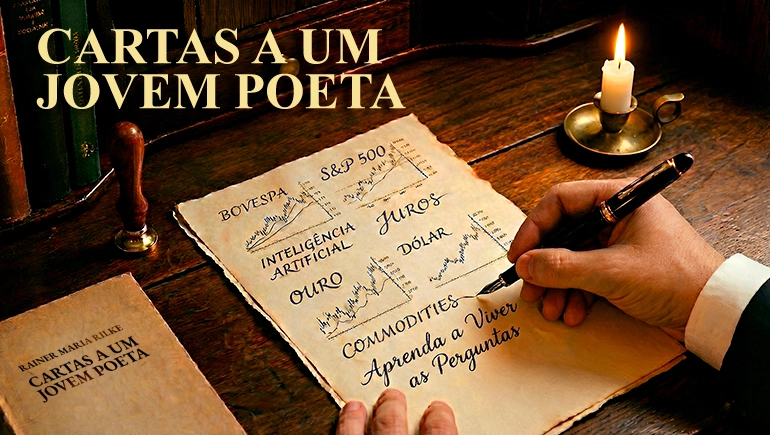 CARTAS A UM
JOVEM POETA
BOVESPA
S&P 500
INTELIGÊNCIA
ARTIFICIAL
JUROS
OURO
DÓLAR
COMMODITIES
Aprenda a Viver
as Perguntas
RAINER MARIA RILKE
CARTAS A UM
JOVEM POETA